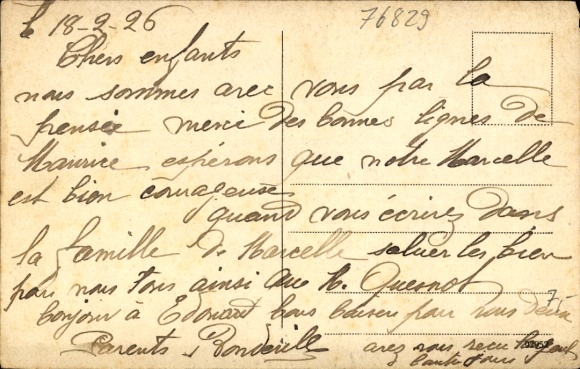 le 18-2-26
76829
Chers enfants
nous sommes avec vous par la
pensée merci des bonnes lignes de
Maurice, espérons que notre Marcelle
est bien courageuse
quand vous écrirez dans
la famille de Marcelle saluer les bien
pour nous tous ainsi que M. Quesnot
7
bonjour à Edouard bons baisers pour vous deux
Parents
avez vous reçu
l'autre jour